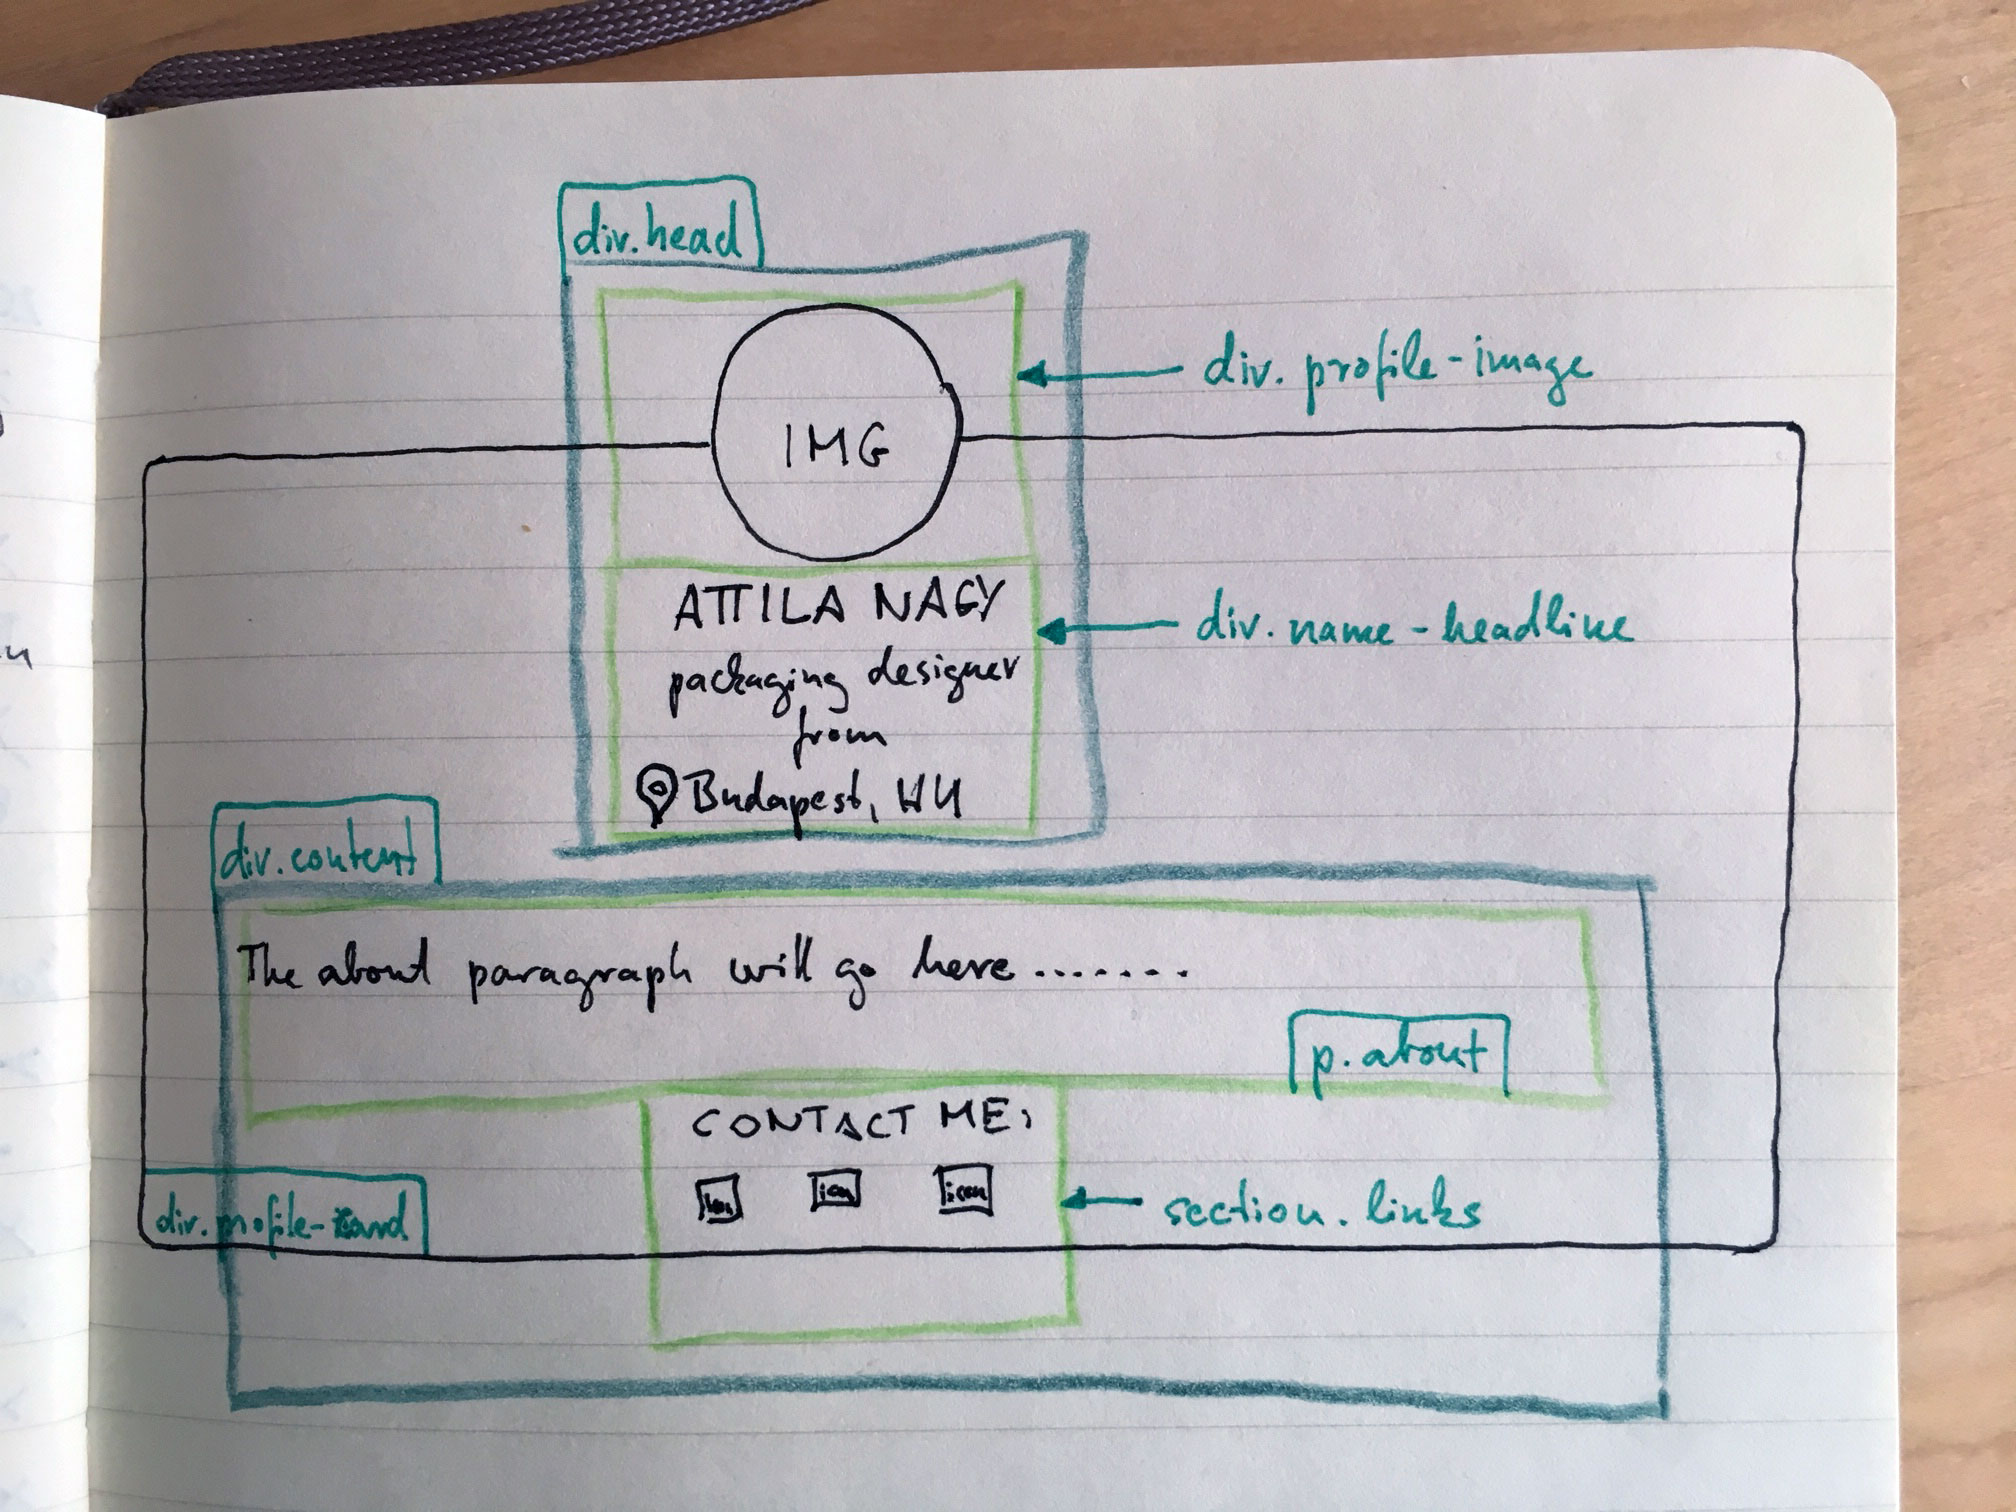 div.head
IMG
div. profile-image
ATTILA NAGY
div.name-headline
packaging designer
from
Budapest, HU
div.content
The about paragraph will go here.......
p.about
CONTACT ME:
icon icon
section.links
div.profile-card